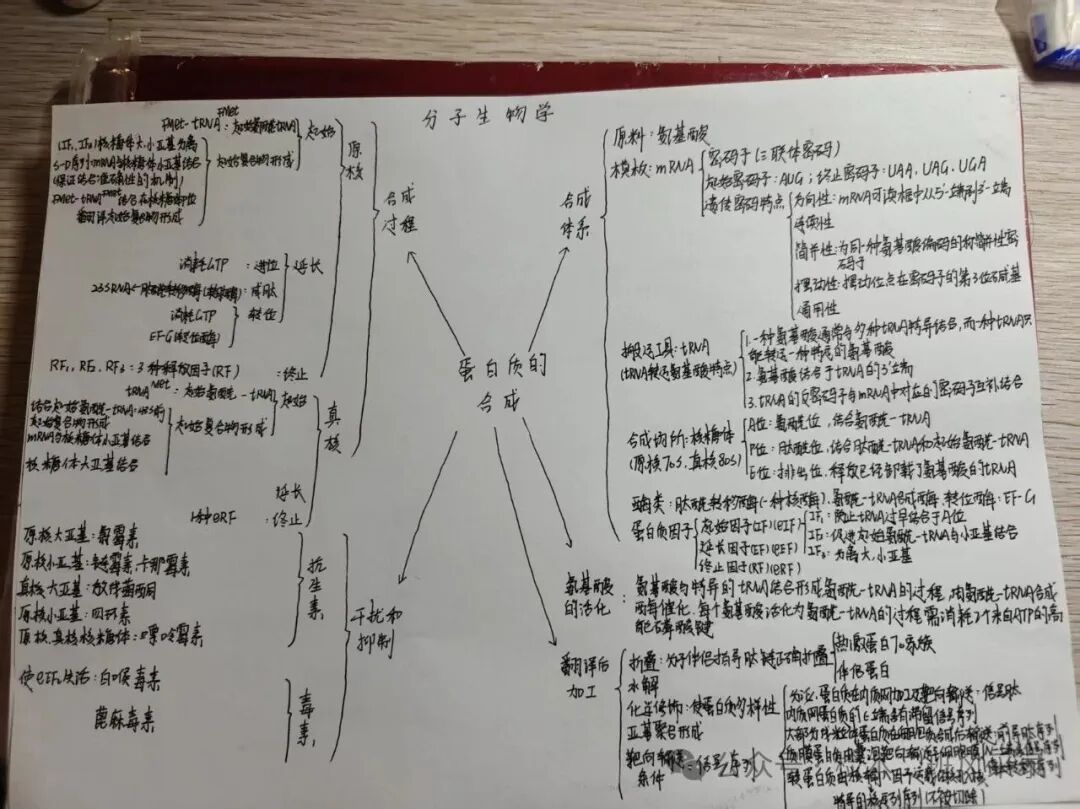 分子生物学
蛋白质的
合成
合成
体系
原料：氨基酸
模板：mRNA
密码子（三联体密码）
起始密码子：AUG；终止密码子：UAA，UAG，UGA
遗传密码特点
方向性：mRNA可读框中从5'-端到3'-端
连续性
简并性：为同一种氨基酸编码的称简并性密
码子
摆动性：摆动位点在密码子的第3位碱基
通用性
搬运工具：tRNA
(tRNA转运氨基酸特点)
1.一种氨基酸通常与多种tRNA特异结合，而一种tRNA只
能转运一种特定的氨基酸
2.氨基酸结合于tRNA的3'端
3.tRNA的反密码子与mRNA中对应的密码子互补结合
合成场所：核糖体
(原核70S，真核80S)
A位：氨酰位，结合氨酰-tRNA
P位：肽酰位，结合肽酰-tRNA和起始氨酰-tRNA
E位：排出位，释放已经卸载了氨基酸的tRNA
酶类：肽酰转移酶(一种核酶)、氨酰-tRNA合成酶、转位酶：EF-G
蛋白质因子
起始因子(IF)(eIF)
延长因子(EF)(eEF)
终止因子(RF)(eRF)
IF₁：防止tRNA过早结合于A位
IF₂：促进起始氨酰-tRNA与小亚基结合
大，小亚基
氨基酸
的活化
：氨基酸与特异的tRNA结合形成氨酰-tRNA的过程，由氨酰-tRNA合成
酶催化，每个氨基酸活化为氨酰-tRNA的过程需消耗2个来自ATP的高
能磷酸键
翻译后
加工
折叠：分子伴侣指导肽链正确折叠
热激蛋白70系统
伴侣蛋白
水解
化学修饰：使蛋白质多样性
亚基聚合形成
靶向输送：信号序列
条件
合成
过程
原核
起始
fMet-tRNA^fMet：起始氨酰tRNA
起始复合物形成
(IF₁、IF₃)核糖体大、小亚基分离
S-D序列：mRNA与核糖体小亚基结合
(保证结合准确性的机制)
fMet-tRNA^fMet结合在核糖体P位
翻译起始复合物形成
延长
消耗GTP：进位
：成肽
消耗GTP
EF-G(转位酶)
：转位
RF₁，RF₂，RF₃：3种释放因子(RF)：终止
真核
起始
：起始氨酰-tRNA
起始复合物形成
mRNA与核糖体小亚基结合
核糖体大亚基结合
延长
1种eRF：终止
干扰和
抑制
抗生素
原核大亚基：氯霉素
原核小亚基：链霉素，卡那霉素
真核大亚基：放线菌酮
原核小亚基：四环素
原核、真核核糖体：嘌呤霉素
毒素
使eEF₂失活：白喉毒素
蓖麻毒素